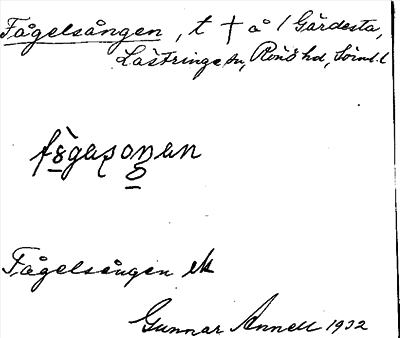 Fågelsången, t † å / Gärdesta,
Lästringe sn, Rönö hd, Sörml. l
fògasonan
Fågelsången ek
Gunnar Annell 1932